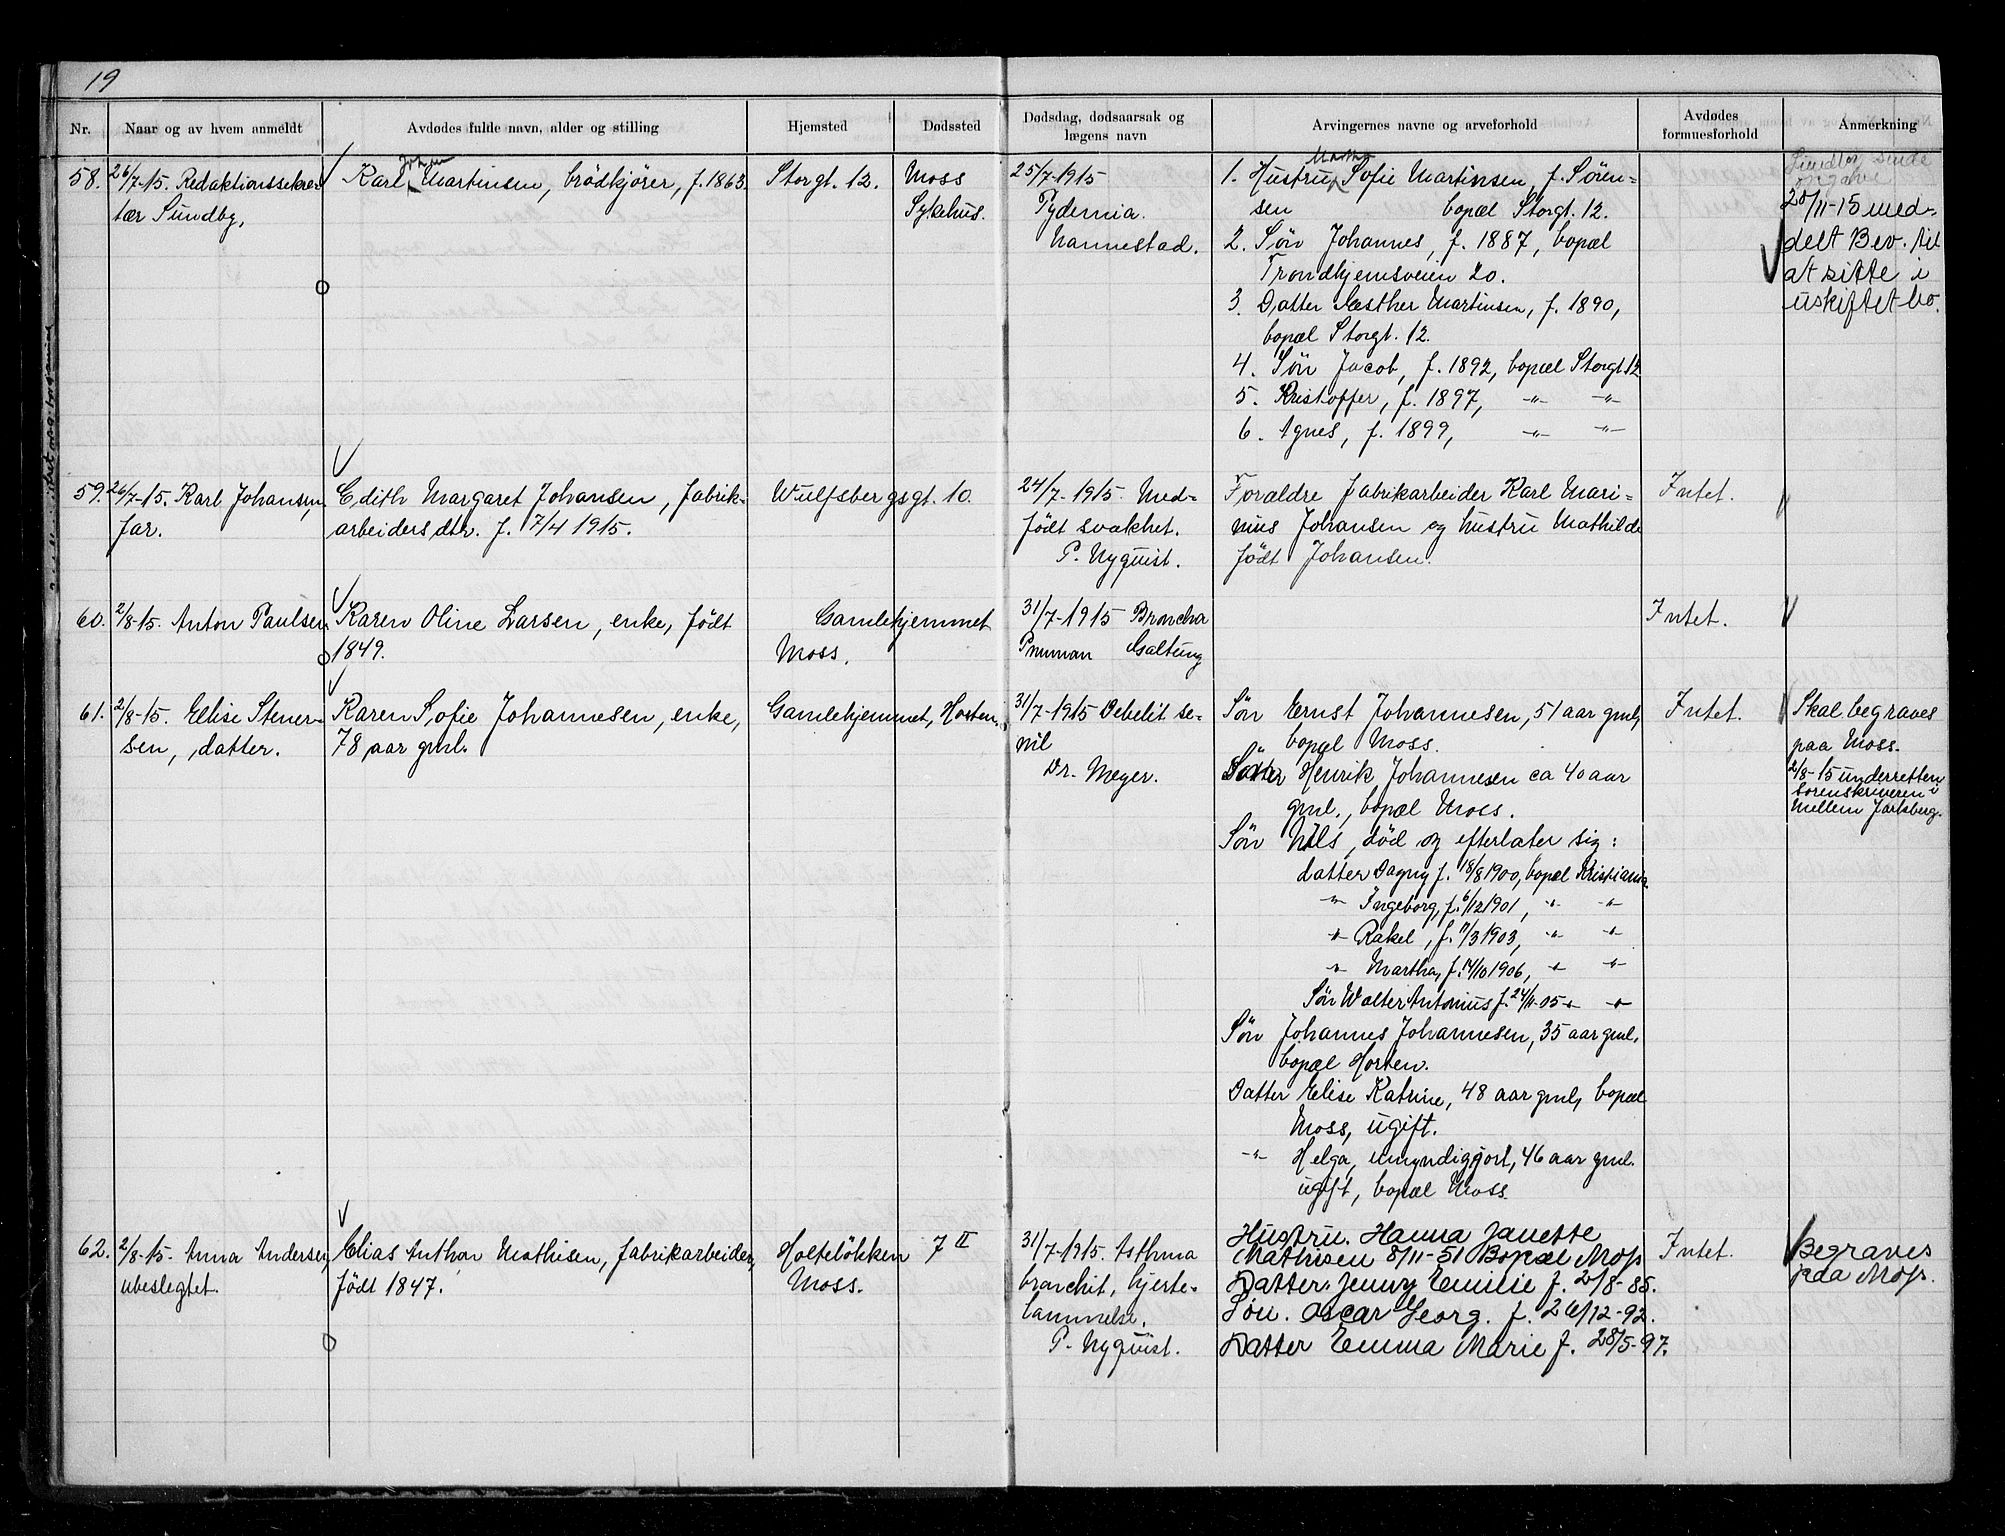 19
Nr.
Naar og av hvem anmeldt
Avdødes fulde navn, alder og stilling
Hjemsted
Dødssted
Dødsdag, dødsaarsak og
lægens navn
Arvingernes navne og arveforhold
Avdødes
formuesforhold
Anmerkning
58.
26/7-15. Redaktionssekre-
tær Sundby,
Johan
Karl Martinsen, brödkjörer, f. 1863.
Storgt. 12.
Moss
Sykehus.
25/7-1915
Pydemia.
Nannestad.
Martha
1. Hustru Sofie Martinsen, f. Sören-
sen bopæl Storgt. 12.
2. Sön Johannes, f. 1887, bopæl
Trondhjemsveien 20.
3. Datter Æsther Martinsen, f. 1890,
bopæl Storgt. 12.
4. Sön Jacob, f. 1892, bopæl Storgt 12
5. Kristoffer, f. 1897, -"- -"-
6. Agnes, f. 1899, -"- -"-
sende
opgave
20/11-15 med-
delt Bev. til
at sitte i
uskiftet bo.
59.
26/7-15. Karl Johansen,
far.
Edith Margaret Johansen, fabrik-
arbeiders dtr. f. 7/4 1915.
Wulfsbergsgt. 10.
24/7-1915. Med-
födt svakhet.
P. Nyquist.
Forældre fabrikarbeider Karl Mari-
nius Johansen og hustru Mathilde
födt Johansen.
Intet.
60.
2/8-15. Anton Paulsen
Karen Oline Larsen, enke, födt
1849.
Gamlehjemmet
Moss.
31/7-1915 Broncho
Pnuman Galtung
Intet.
61.
2/8-15. Elise Stener-
sen, datter.
Karen Sofie Johannesen, enke,
78 aar gml.
Gamlehjemmet, Horten.
31/7-1915 Debelit se-
nil
Dr. Meyer.
Sön Ernst Johannesen, 51 aar gml,
bopæl Moss.
Sön Henrik Johannesen ca 40 aar
gml., bopæl Moss.
Sön Nils, död og efterlater sig:
datter Dagny f. 18/8 1900, bopæl Kristiania.
-"- Ingeborg, f. 6/12 1901, -"- -"-
-"- Rakel, f. 11/3 1903, -"- -"-
-"- Martha, f. 14/10 1906, -"- -"-
Sön Walter Antonius f. 24/11-05 -"- -"-
Sön Johannes Johannesen, 35 aar gml,
bopæl Horten.
Datter Elise Katrine, 48 aar gml, bopæl
Moss, ugift.
-"- Helga, umyndiggjort, 46 aar gml.
ugift, bopæl Moss.
Intet.
Skal begraves
paa Moss.
2/8-15 underretten
sorenskriveren i
Mellem Jarlsberg.
62.
2/8-15. Anna Andersen,
ubeslegtet.
Elias Anthon Mathisen, fabrikarbeider,
födt 1847.
Holtelökken
Moss.
7 II
31/7-1915. Asthma
bronchit, hjerte-
lammelse.
P. Nyquist.
Hustru. Hanna Janette
Mathisen 8/11-51 Bopæl Moss
Datter. Jenny Emilie f. 2/8-85.
Sön. Oscar Georg. f. 26/12-92.
Datter Emma Marie f. 28/5-97.
Intet.
Begraves
paa Moss.